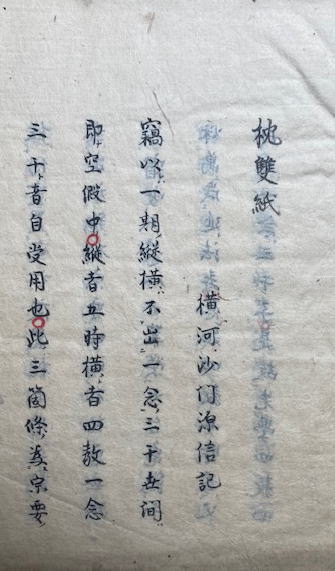 枕雙紙
横河沙门源信記
竊以一期縦横不出一念三千世间
即空假中縦者五時横者四教一念
三千者自受用也此三箇條為宗要